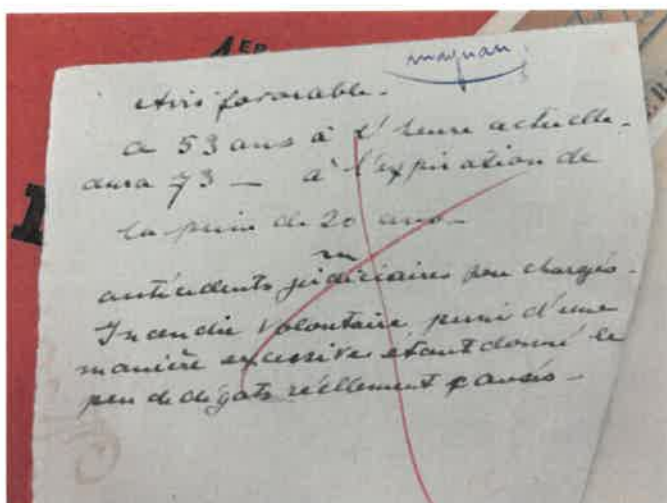 1ER
maquan
Avis favorable.
a 53 ans à l'heure actuelle.
aura 73 — à l'expiration de
la peine de 20 ans.
antécédents judiciaires peu chargés.
Incendie volontaire, puni d'une
manière excessive étant donné le
peu de dégats réellement causés.